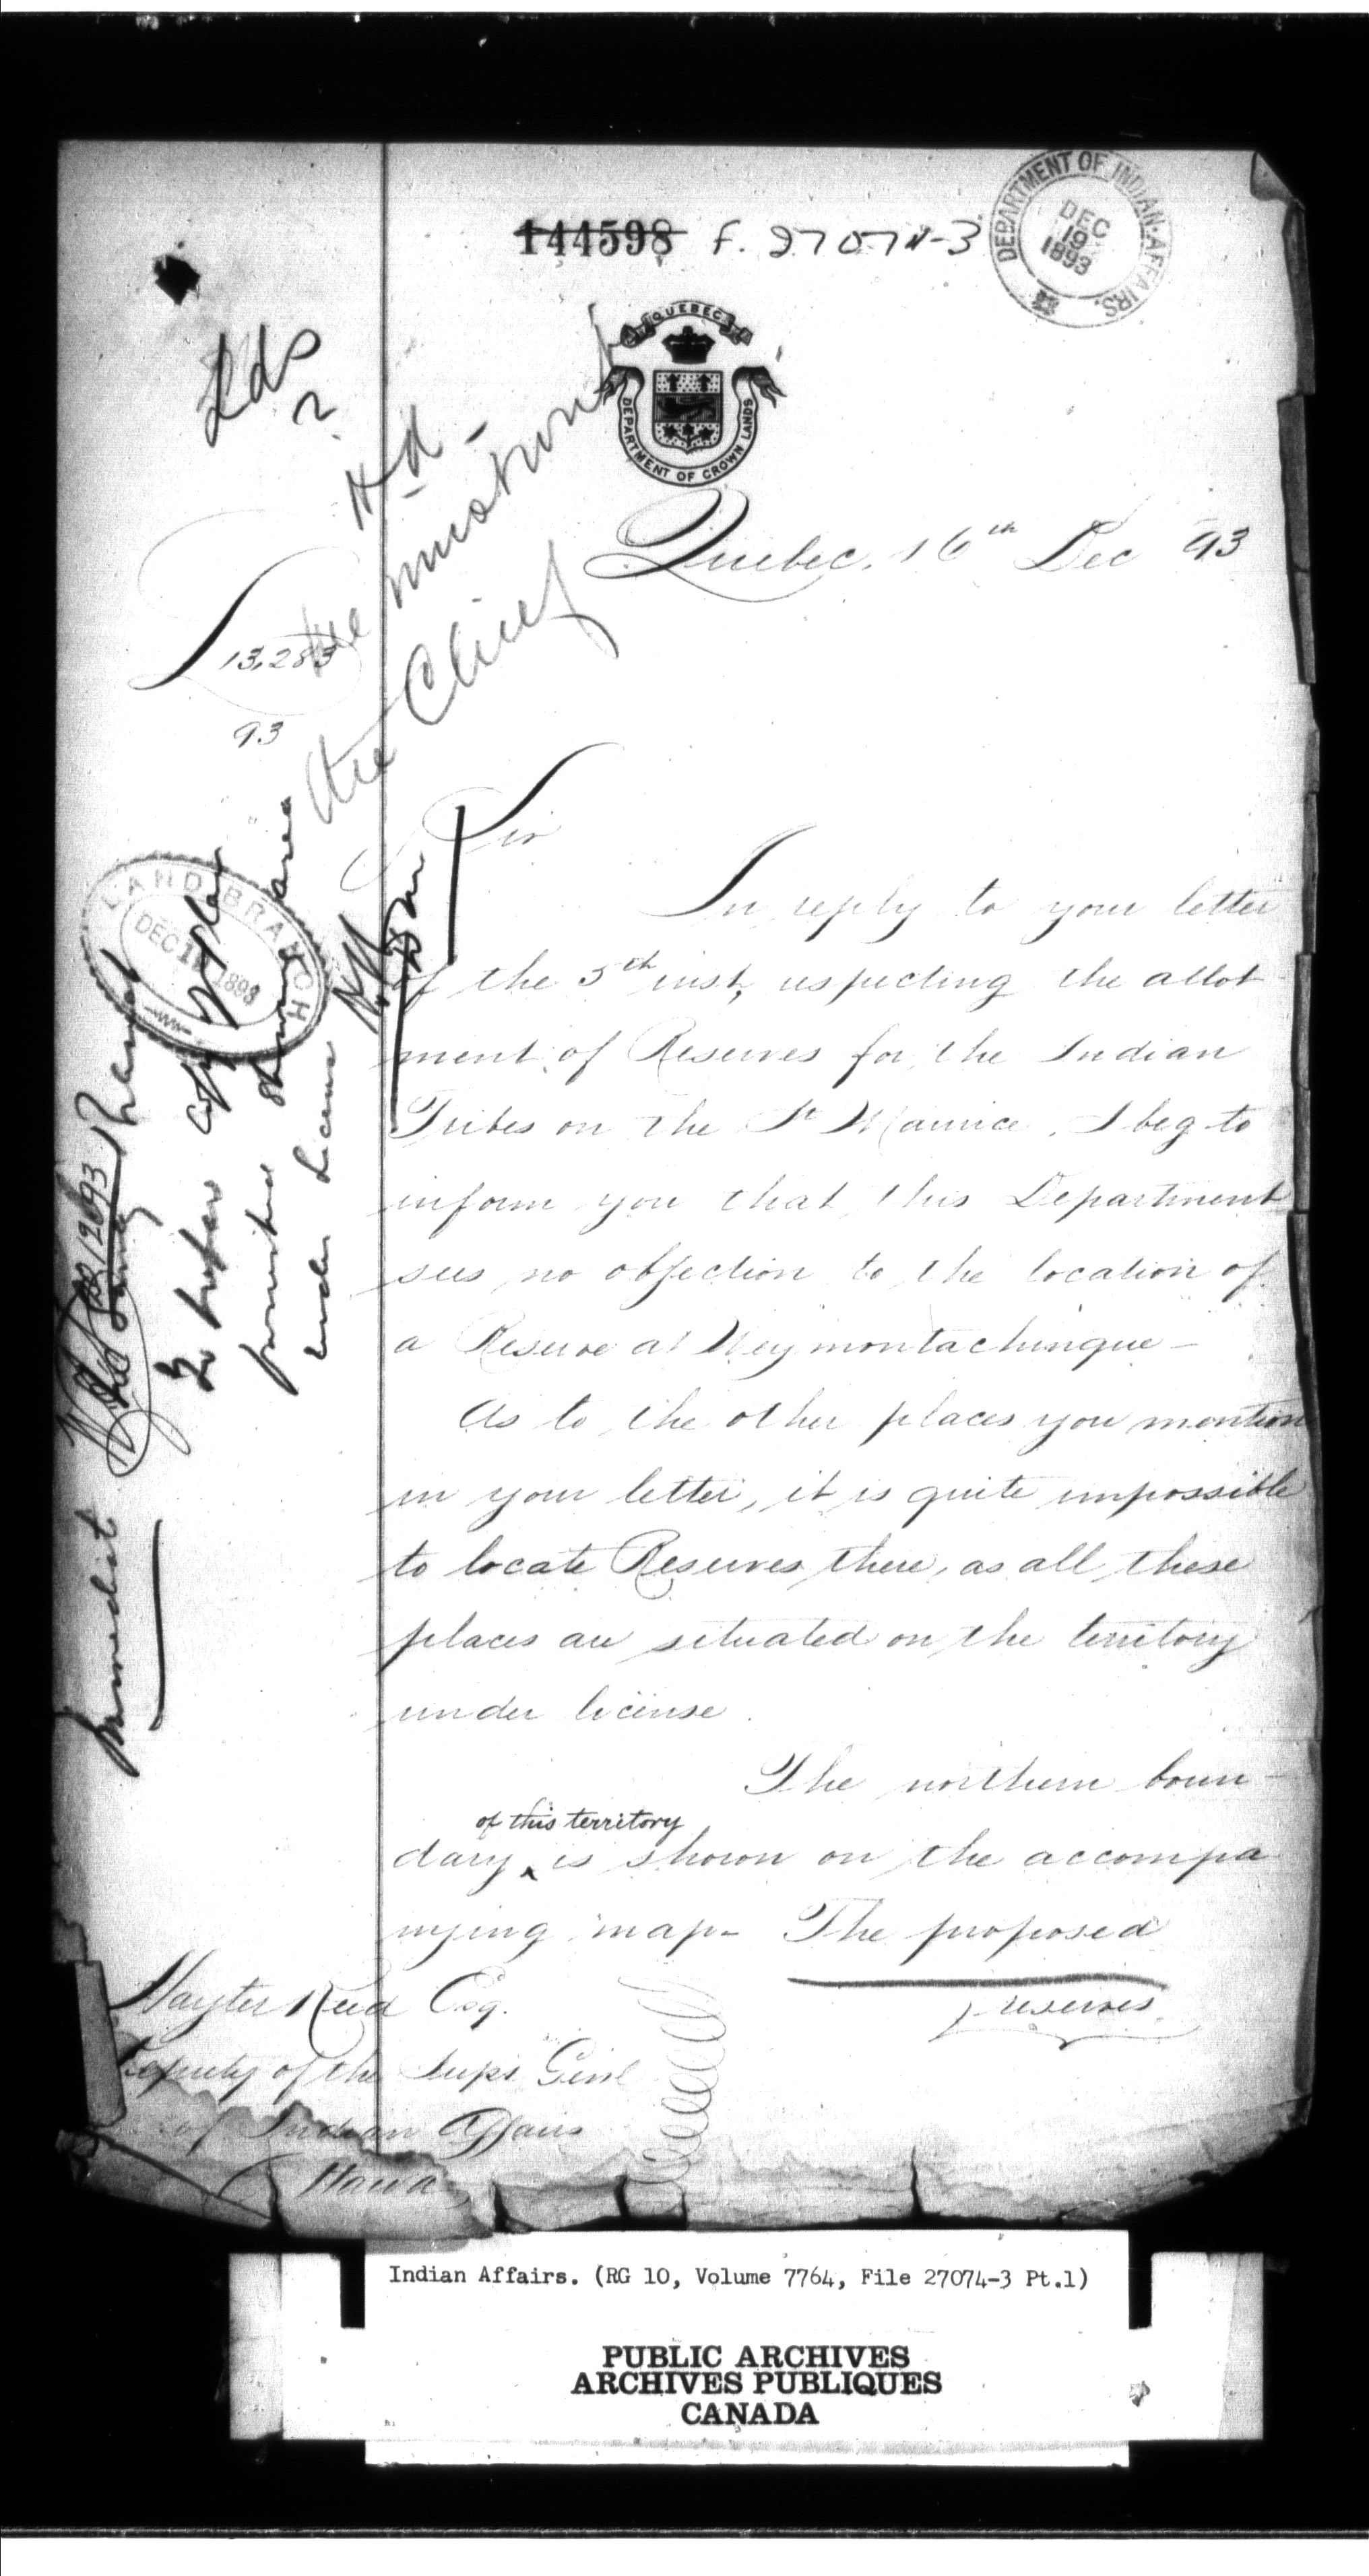 144598 f. 27074-3
DEPARTMENT OF INDIAN AFFAIRS.
DEC
19
1893
QUEBEC
DEPARTMENT OF CROWN LANDS
Lds
2
Quebec, 16th Dec 93
13,283
93
the Chief
Sir
In reply to your letter
of the 5th inst, respecting the allot
ment of Reserves for the Indian
Tribes on the St Maurice, I beg to
inform you that this Department
sees no objection to the location of
a Reserve at Weymontachingue -
As to the other places you mention
in your letter, it is quite impossible
to locate Reserves there, as all these
places are situated on the territory
under license.
The northern boun-
of this territory
dary ^ is shown on the accompa
nying map - The proposed
reserves.
Hayter Reed Esq.
Deputy of the Supt Genl
of Indian Affairs
Ottawa
LAND BRANCH
DEC 19 1893
To prepare copy of plan
furnished shewing area
under License
Immediate
Indian Affairs. (RG 10, Volume 7764, File 27074-3 Pt.1)
PUBLIC ARCHIVES
ARCHIVES PUBLIQUES
CANADA